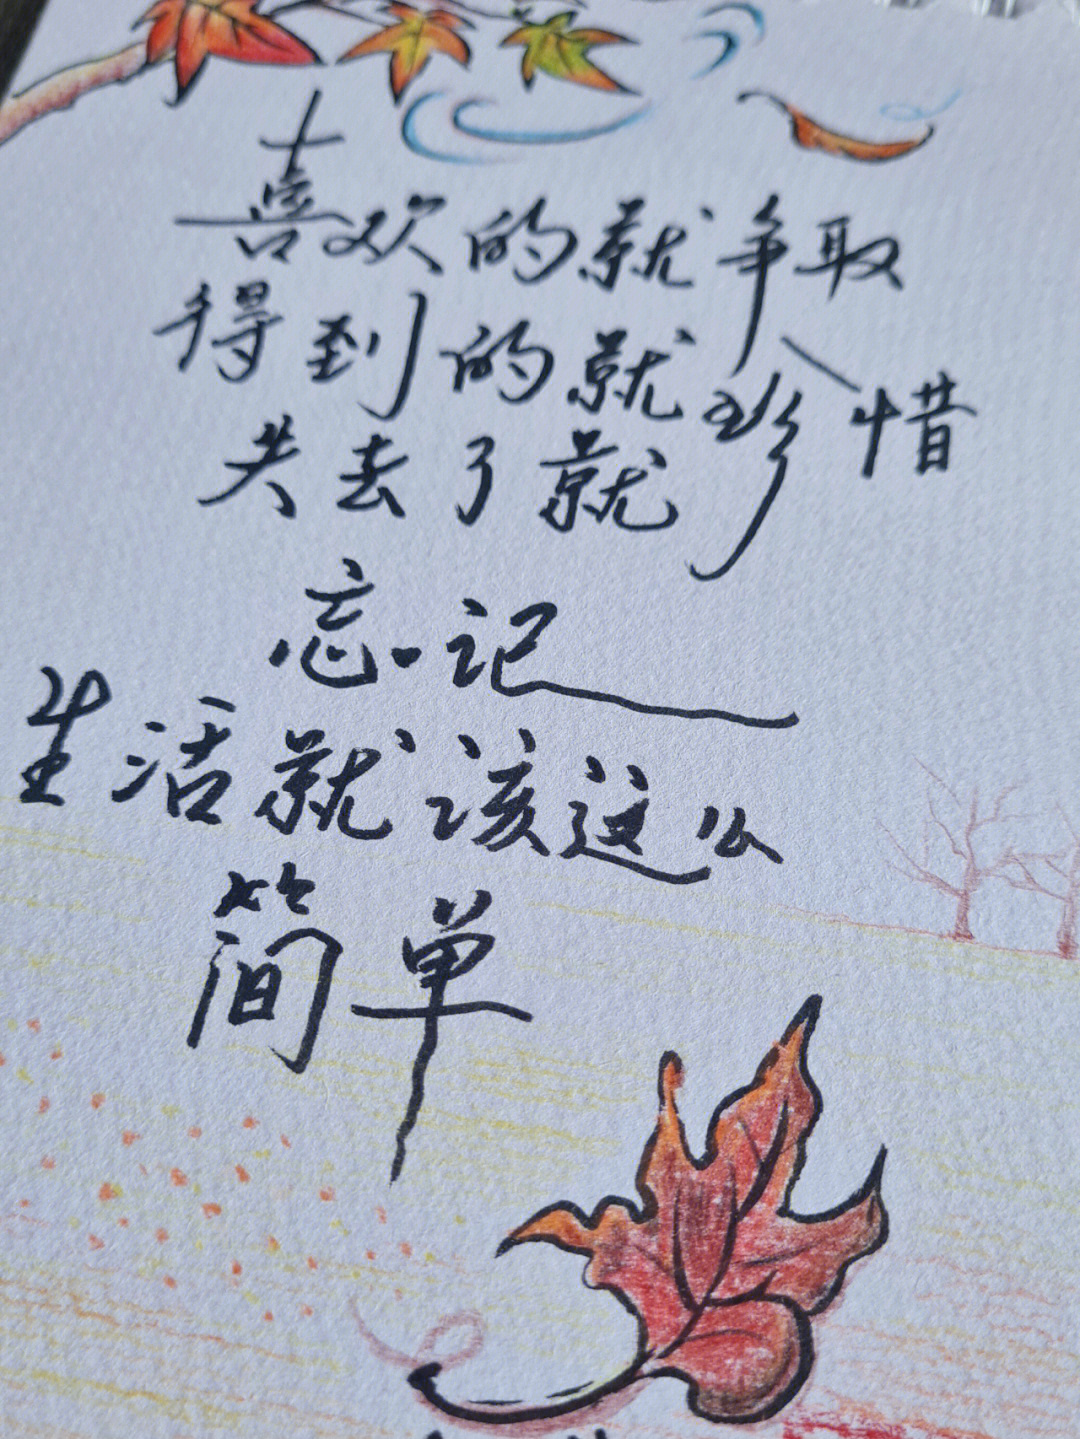 喜欢的就争取
得到的就珍惜
失去了就
忘记
生活就该这么
简单